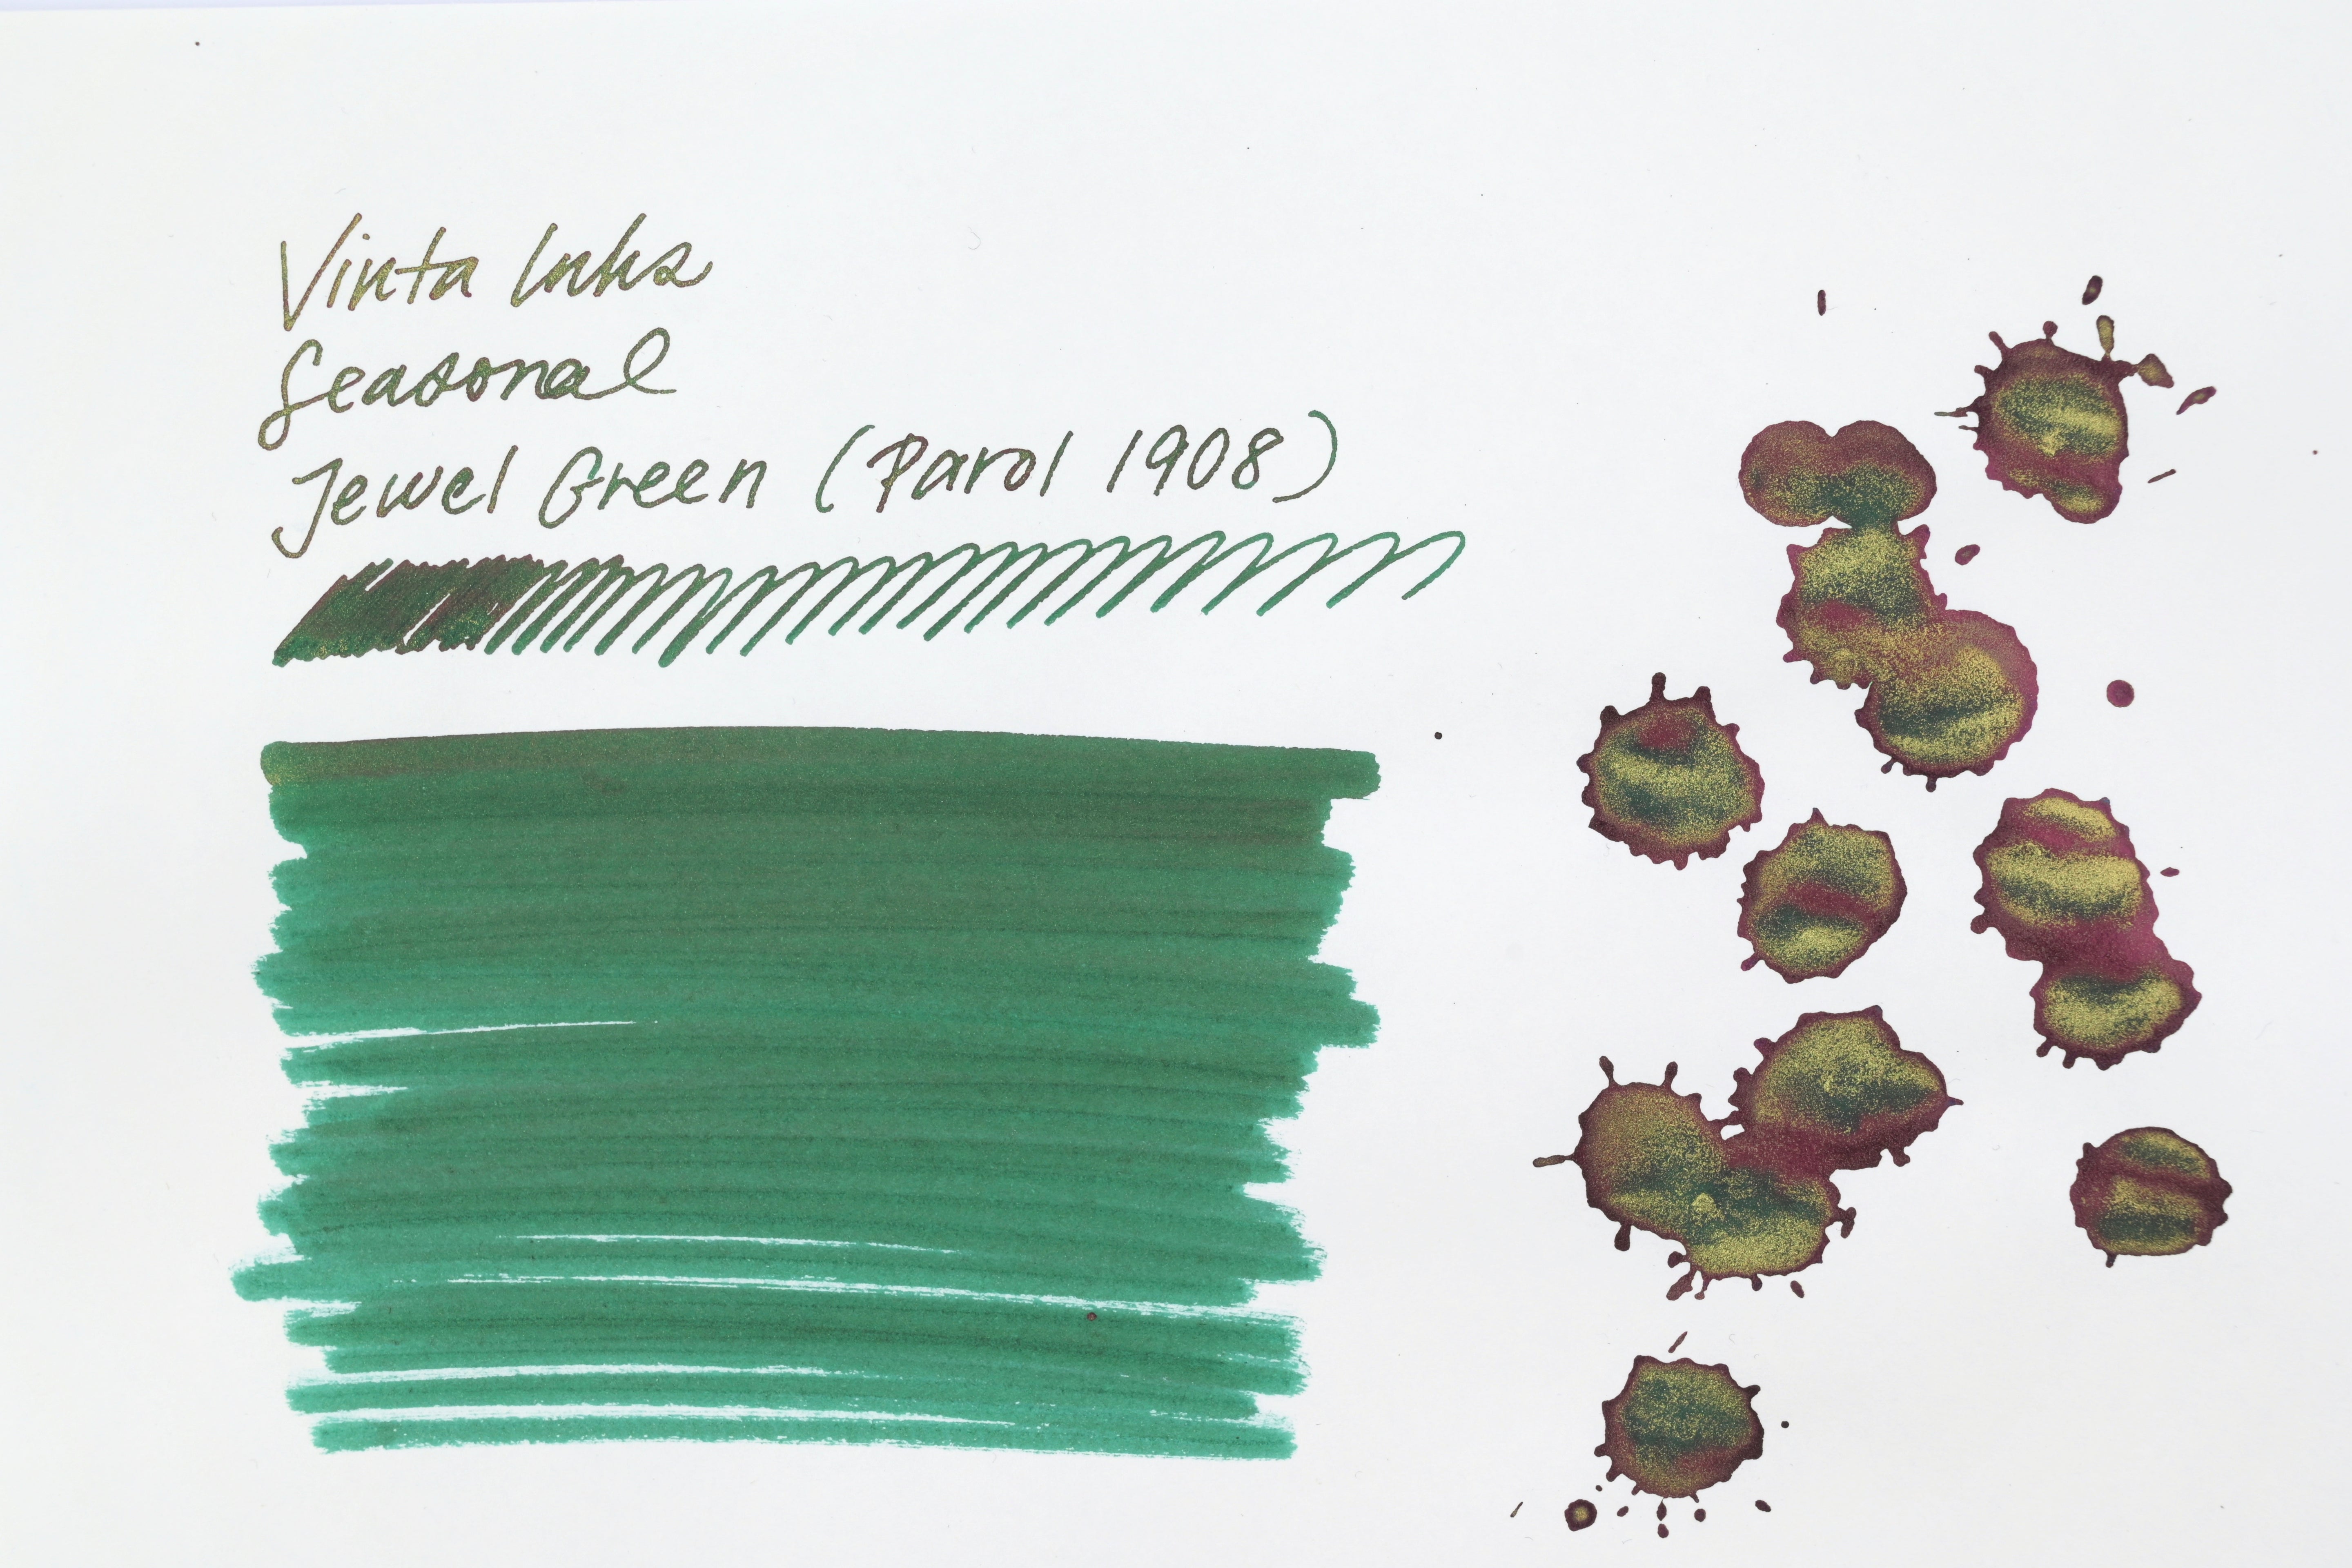 Vinta Inks
Seasonal
Jewel Green (Parol 1908)